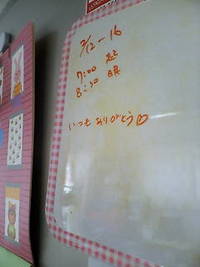 2/12-16
7:00 起
8:30 寝
いつも ありがとう♡